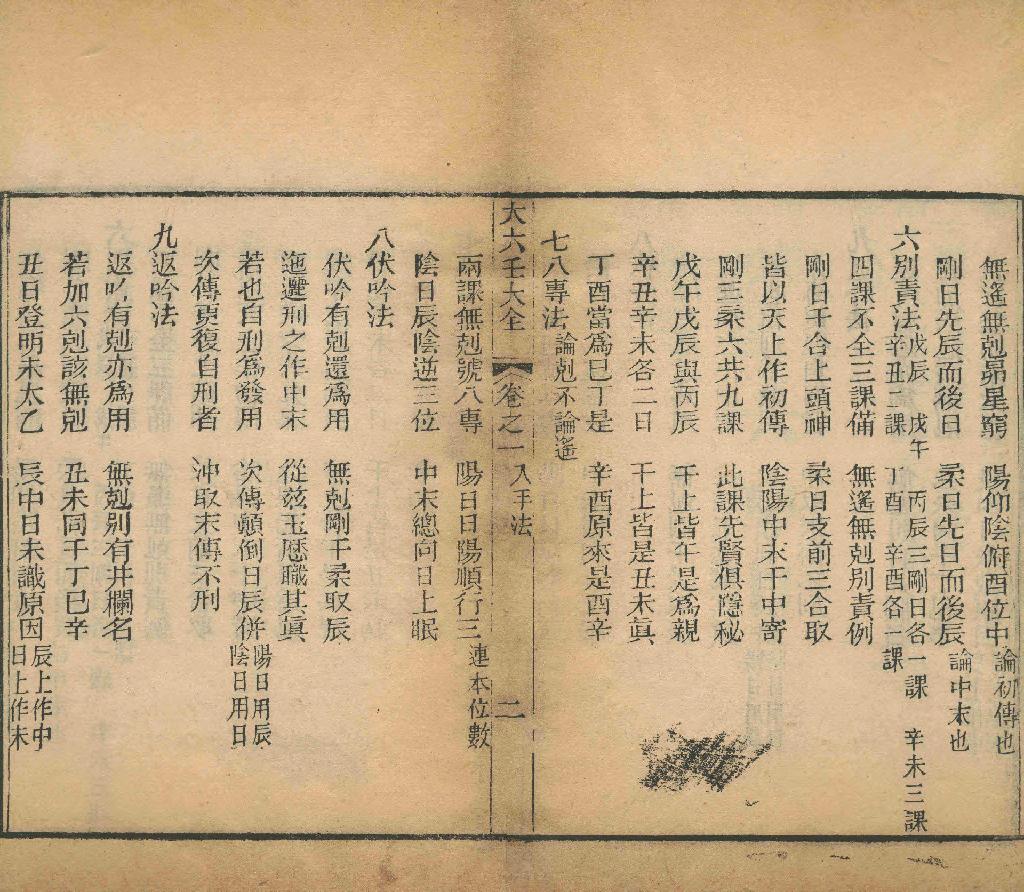 無遙無剋昴星窮 陽仰陰俯酉位中 論初傳也
剛日先辰而後日 柔日先日而後辰 論中末也
六別責法 戊辰 戊午 丙辰三剛日各一課 辛未三課
辛丑二課 丁酉 辛酉各一課
四課不全三課備 無遙無剋別責例
剛日干合上頭神 柔日支前三合取
皆以天上作初傳 陰陽中末干中寄
剛三柔六共九課 此課先賢俱隱秘
戊午戊辰與丙辰 干上皆午是為親
辛丑辛未各二日 干上皆是丑未真
丁酉當為巳丁是 辛酉原來是酉辛
七八專法 論剋不論遙
大六壬大全 卷之一 入手法 二
兩課無剋號八專 陽日日陽順行三 連本位數
陰日辰陰逆三位 中末總向日上眠
八伏吟法
伏吟有剋還為用 無剋剛干柔取辰
迤邐刑之作中末 從兹玉歷職其眞
若也自刑為發用 次傳顛倒日辰併 陽日用辰
陰日用日
次傳更復自刑者 沖取末傳不刑
九返吟法
返吟有剋亦為用 無剋別有井欄名
若加六剋該無剋 丑未同干丁巳辛
丑日登明未太乙 辰中日末識原因 辰上作中
日上作末